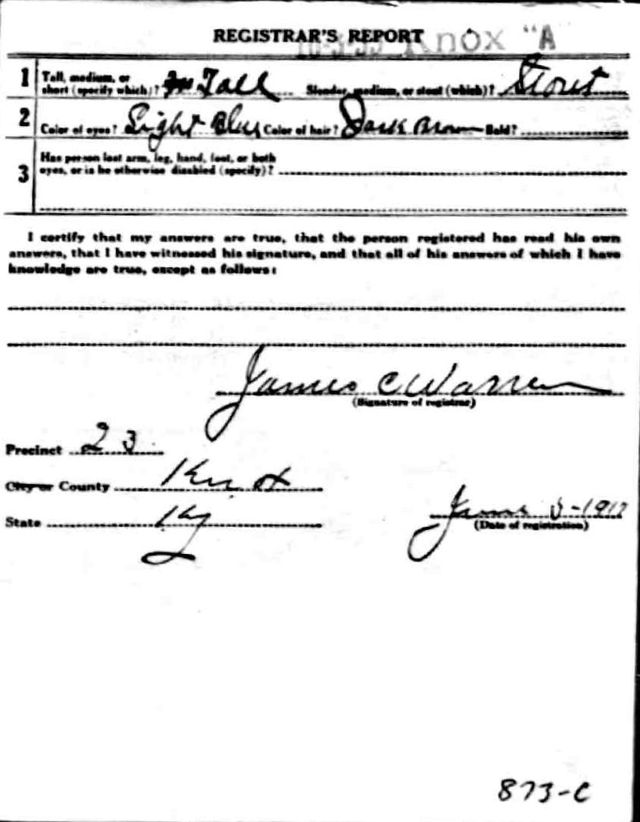 REGISTRAR'S REPORT
Knox "A"
1 Tall, medium, or short (specify which)? Tall Slender, medium, or stout (which)? Stout
2 Color of eyes? Light Blue Color of hair? Dark Brown Bald?
3 Has person lost arm, leg, hand, foot, or both eyes, or is he otherwise disabled (specify)?
I certify that my answers are true, that the person registered has read his own
answers, that I have witnessed his signature, and that all of his answers of which I have
knowledge are true, except as follows:
James C Warren
(Signature of registrar)
Precinct 23
City or County Knox
State Ky
June 5-1917
(Date of registration)
873-C